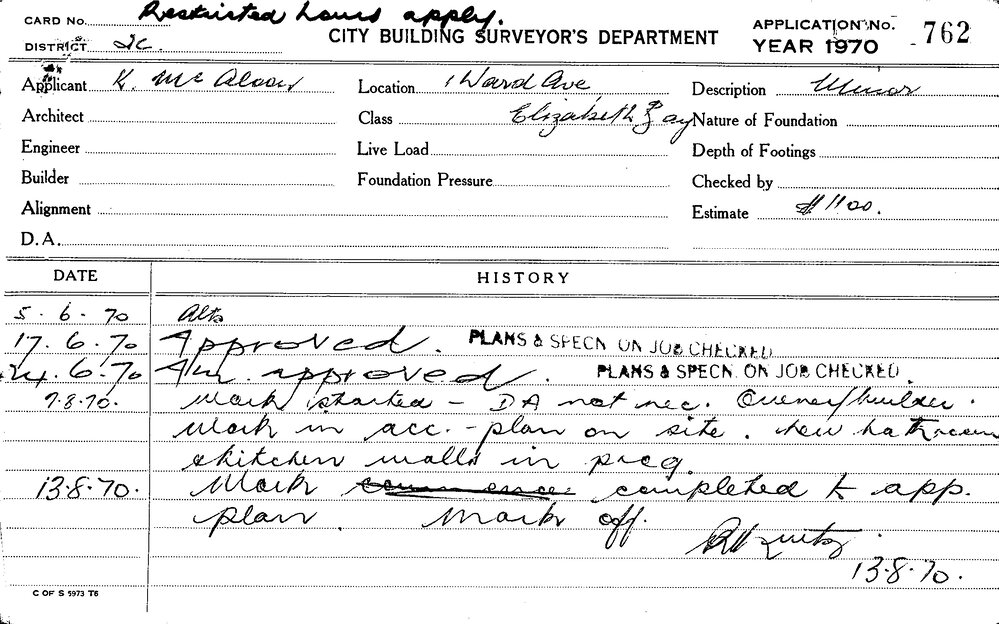 Restricted hours apply.
CARD No.
CITY BUILDING SURVEYOR'S DEPARTMENT
APPLICATION No. 762
DISTRICT 2c
YEAR 1970
Applicant K. Mc
Location 1 Ward Ave
Description Minor
Architect
Class Elizabeth Bay
Nature of Foundation
Engineer
Live Load
Depth of Footings
Builder
Foundation Pressure
Checked by
Alignment
Estimate $1100.
D.A.
DATE
HISTORY
5.6.70 Alts
17.6.70 Approved. PLANS & SPECN ON JOB CHECKED
24.6.70 Am. approved. PLANS & SPECN. ON JOB CHECKED
7.8.70. Work started - DA not nec. Owner/builder.
Work in acc. - plan on site. New bathroom
& kitchen walls in prog.
13.8.70. Work completed to app.
plan. Mark off.
13.8.70.
C OF S 5973 T6